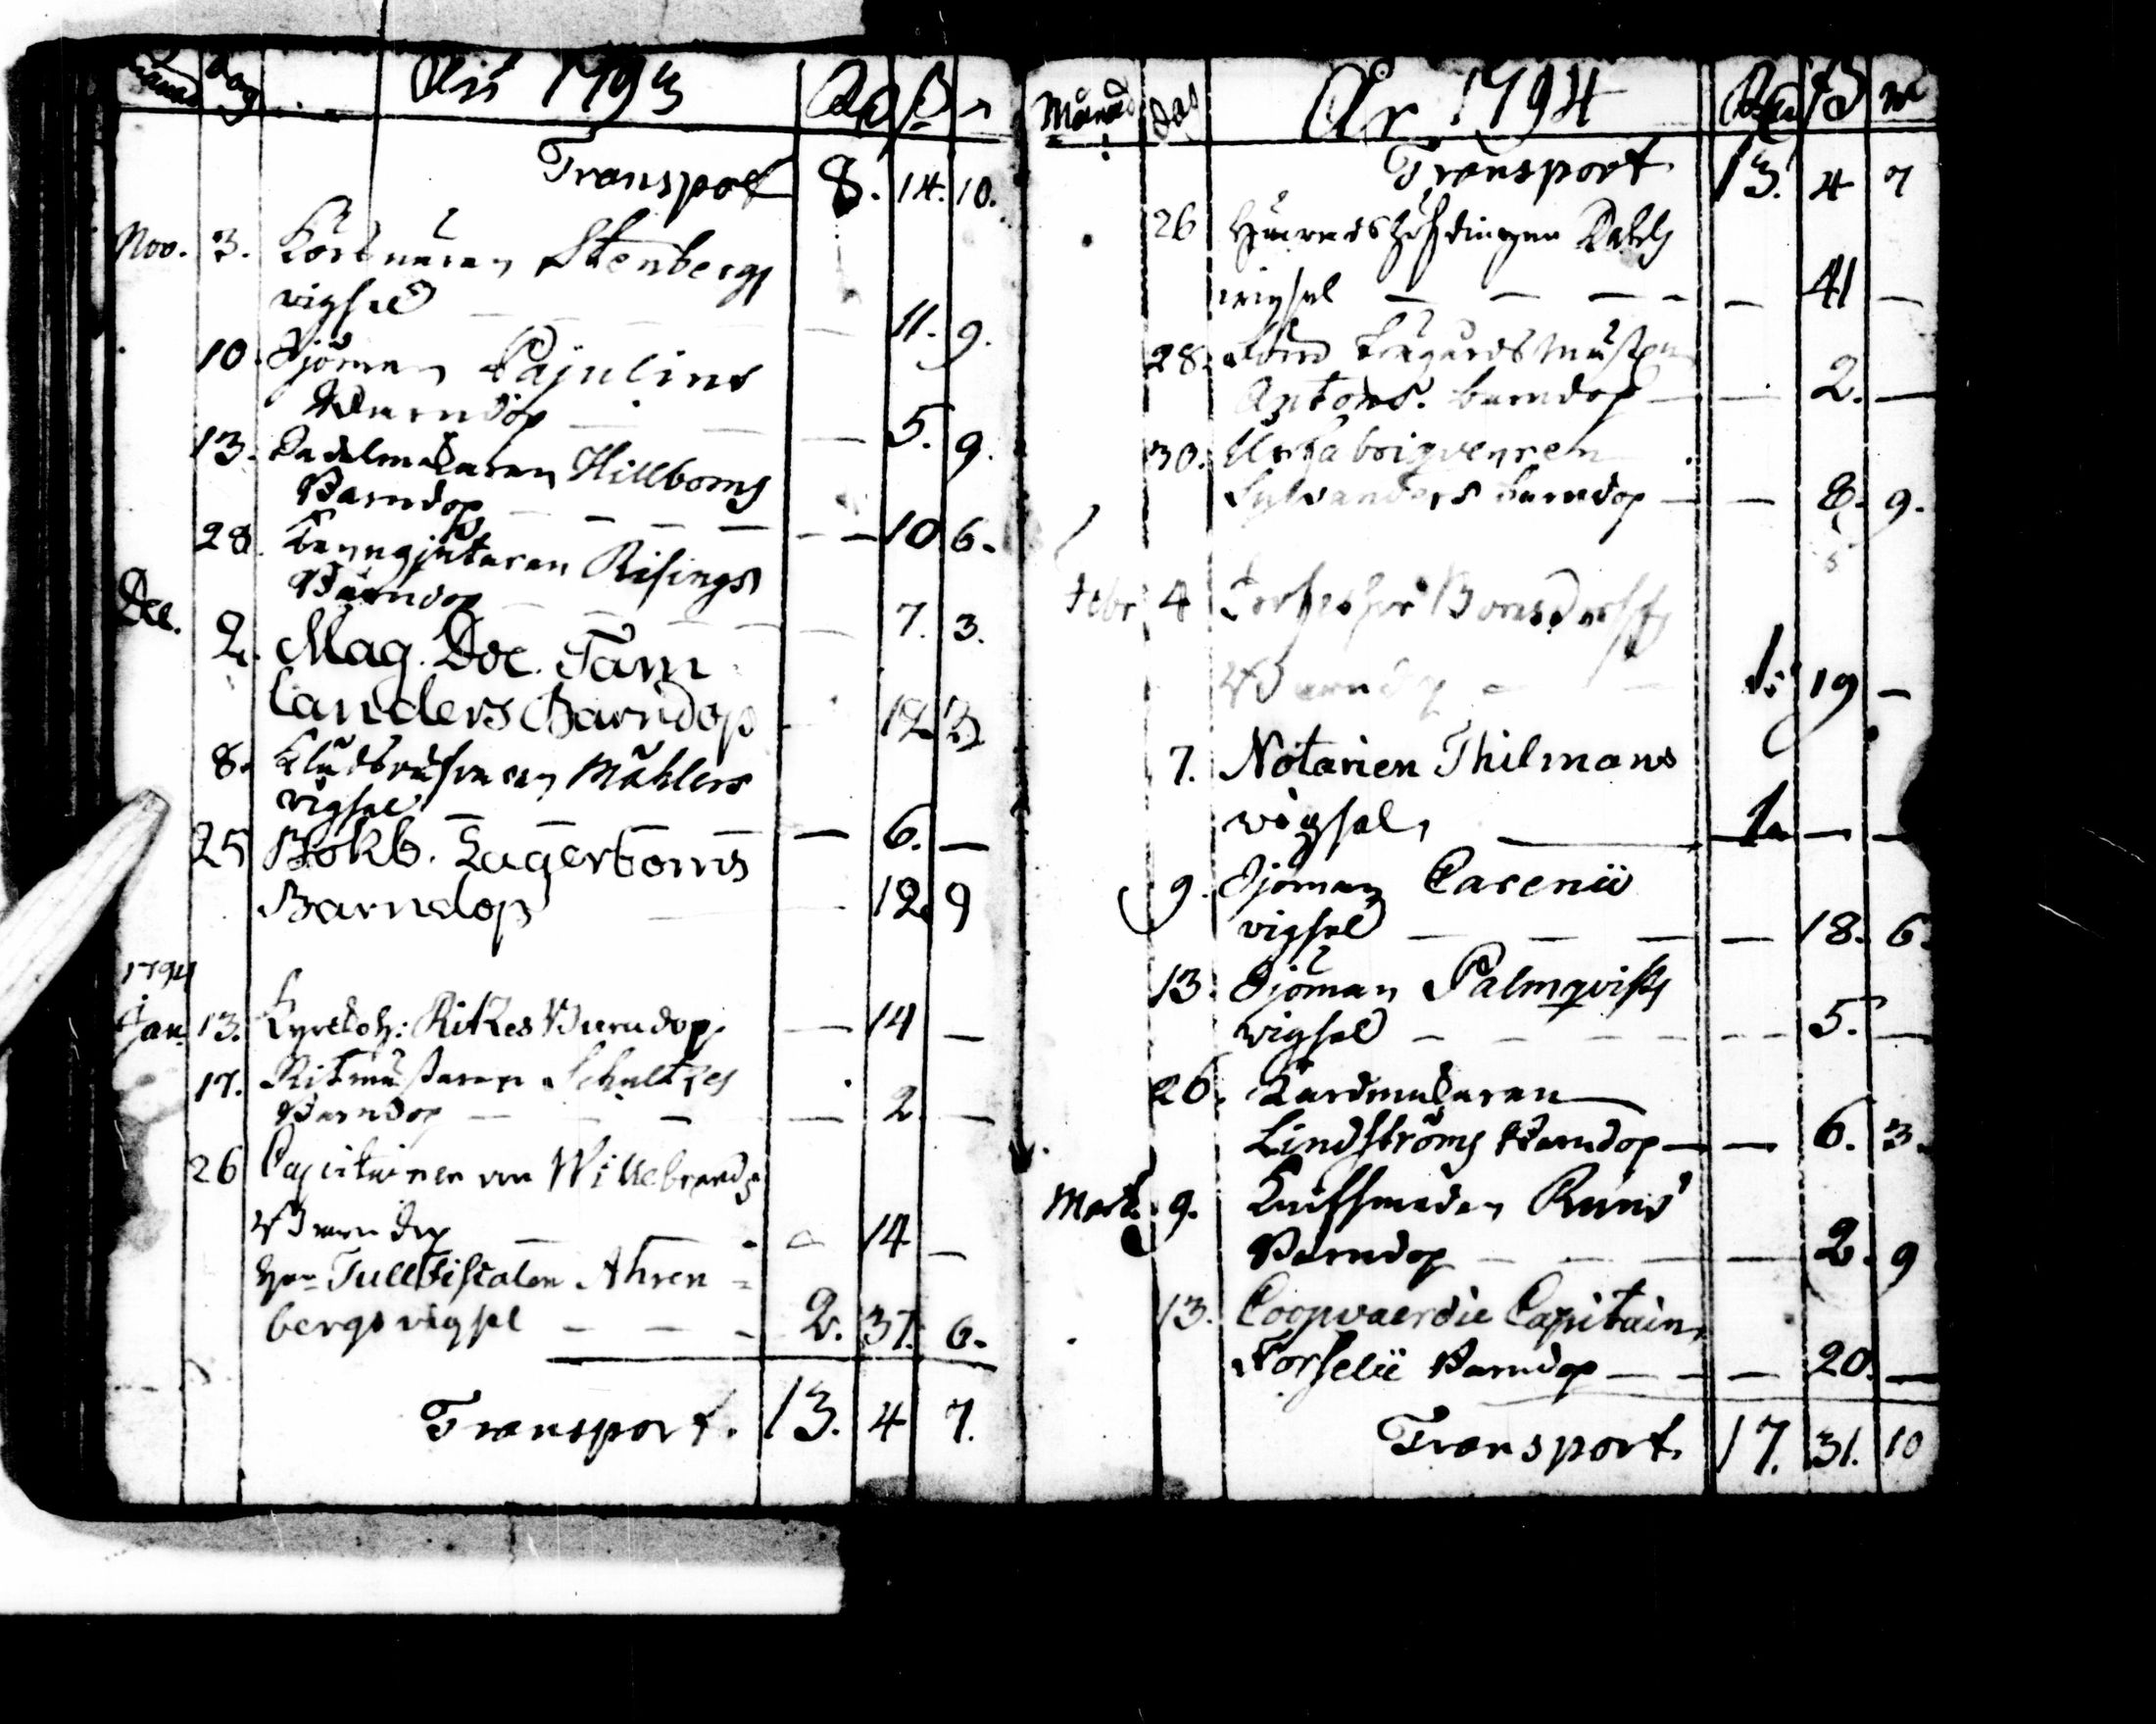 Månad dag År 1793 Rd ß
Transport 8. 14. 10.
Nov. 3. Körsnären Stenbergs
vigsel 11. 9.
10. Sjöman Pajulins
Barndop — — 5. 9.
13. Sadelmakaren Hillboms
Barndop — — — — 10 6.
28. Kanngjutaren Risings
Barndop — — 7. 3.
Dec. 2. Mag. Doc. Tam
landers Barndop 12. 3
8. Mählers
vigsel — — — — 6. —
25 Bokb. Lagerboms
Barndop 12. 9
1794
Jan. 13. Ritkes Barndop. — 14 —
17. Ritmästaren Schultzes
Barndop — — — — 2. —
26 Capitainen von Willebrands
Barndop — — 14 —
Tullfiscalen Ahren=
bergs vigsel — — — 2. 37. 6.
Transport. 13. 4 7.
Månad dag År 1794 ß
Transport 13. 4 7
26 Häradshöfdingen Dahls
vigsel — — — — — 41 —
28. Trägårdsmästaren
Antons. barndop — — 2. —
30. Urfabriqueuren
Sylvanders barndop — — 8. 9.
Febr 4 Professor Bonsdorffs
Barndop — — 1. 19 —
7. Notarien Thilmans
vigsel, — 1. — —
9. Sjöman Carenii
vigsel — — — — 18. 6.
13. Sjöman Palmqvists
vigsel — — — — — 5. —
26. Kardmakaren
Lindströms Barndop — — 6. 3.
Mart. 9. Kniffsmeden Runs
Barndop — — — — 2. 9
13. Coopvaerdie Capitain
Forselii Barndop — — — 20. —
Transport. 17. 31. 10